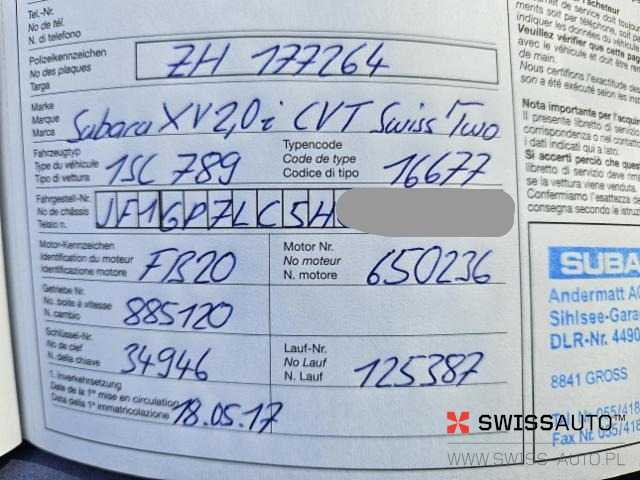 Tel.-Nr.
No de tél.
N. di telefono
Polizeikennzeichen
No des plaques
Targa
ZH 177264
Marke
Marque
Marca
Subaru XV 2,0i CVT Swiss Two
Fahrzeugtyp
Type du véhicule
Tipo di vettura
1SC 789
Typencode
Code de type
Codice di tipo
16677
Fahrgestell-Nr.
No de châssis
Telaio n.
JF1GP7LC5H
Motor-Kennzeichen
Identification du moteur
Identificazione motore
FB20
Motor Nr.
No moteur
N. motore
650236
Getriebe Nr.
No. boîte à vitesse
N. cambio
885120
Schlüssel-Nr.
No de clef
N. della chiave
34946
Lauf-Nr.
No Lauf
N. Lauf
125387
1. Inverkehrsetzung
Date de la 1re mise en circulation
Data della 1a immatricolazione
18.05.17
l'acheteur
de service doit toujours
ments soit par téléphone, soit
indiquer les données du véhicule
Veuillez vérifier que cette pag
avec le véhicule et doit être
de main.
Nous certifions l'exactitude des
son a été exécuté selon les
Nota importante per l'acqui
Il presente libretto di servizio
corrispondenza o nel contatt
i dati indicati qui a lato.
Si accerti perciò che ques
libretto di servizio deve rima
se la vettura viene venduta.
Confermiamo l'esattezza de
consegna secondo le istruz
SUBA
Andermatt AG
Sihlsee-Gara
DLR-Nr. 4490
8841 GROSS
Tel. Nr. 055/418
Fax Nr. 055/418
SWISSAUTO™
WWW.SWISS-AUTO.PL